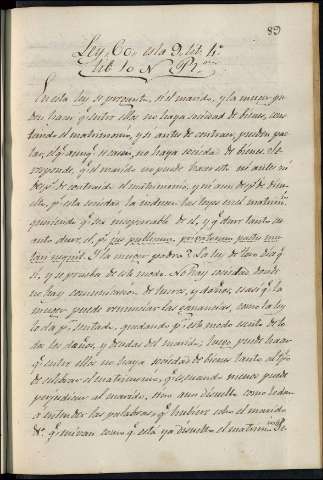 89
Ley, 60, es la 9. lib. 4.
tit. 10 N. R.
En esta ley se pregunta, si el marido, y la muger pue
dan hacer qe. entre ellos no haya sociedad de bienes, cons
tando el matrimonio, y si antes de contraer, pueden pac
tar, el qe. aunqe. se casen, no haya sociedad de bienes? Se
responde, qe. el marido no puede hacer esto ni antes ni
desps. de contraido el matrimonio, y ni aun desps. de disu
elto, pr. esta sociedad la inducen las leyes en el matrimo
queriendo qe. sea inseparable de él, y qe. dure tanto cu
anto dure, él, pr. jus publicum privatorum pactis mu
tari nequit. Y la muger podrá? La ley de Toro dice qe.
sí, y se prueba de este modo. No hay sociedad donde
no hay comunicacion de lucros, y daños; es así qe. la
muger puede renunciar las ganancias, como la ley
lo da pr. sentado, quedando pr. este modo exento de to
dos los daños, y deudas del marido; luego puede hacer
qe. entre ellos no haya sociedad de bienes tanto al tpo.
de celebrar el matrimonio,
perjudicar al marido, sino aun disuelto como
á entender las palabras, qe. hubiere sido el marido
&c. qe. miran como qe. está ya disuelto el matrimo. Se